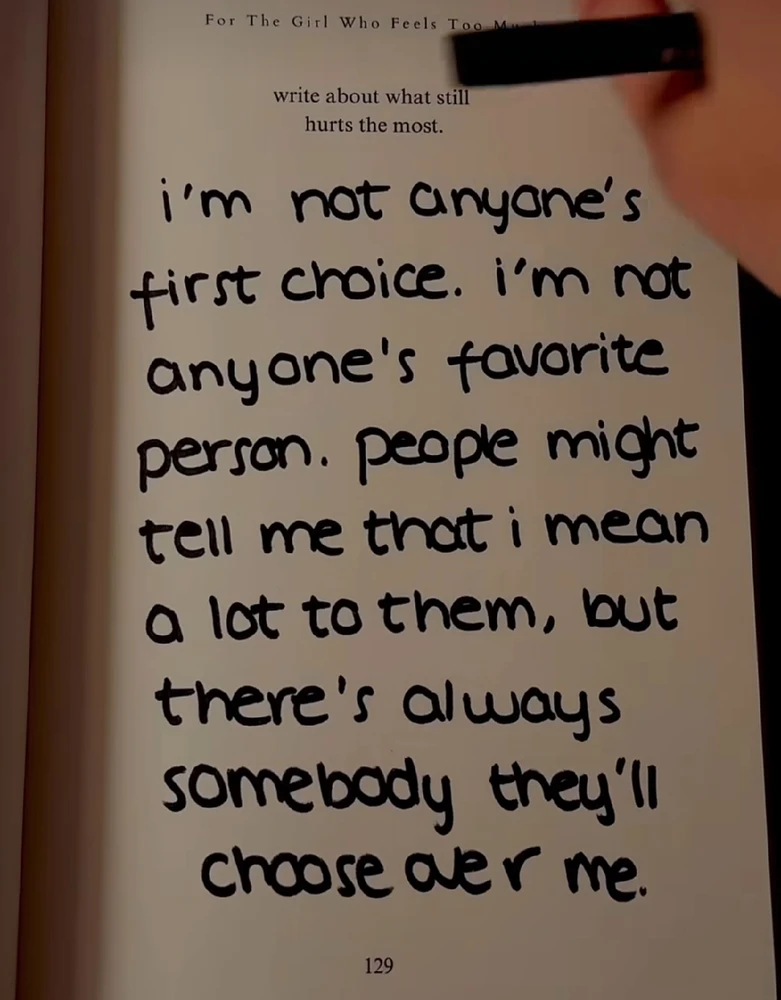 For The Girl Who Feels Too
write about what still
hurts the most.
i'm not anyone's
first choice. i'm not
anyone's favorite
person. people might
tell me that i mean
a lot to them, but
there's always
somebody they'll
choose over me.
129